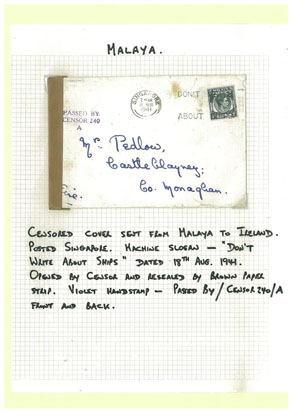 MALAYA.
SINGAPORE
1941
DON'T
ABOUT
PASSED BY
CENSOR 240
A
Mrs. Pedlow,
Castleblayney,
Co. Monaghan.
Eire.
CENSORED COVER SENT FROM MALAYA TO IRELAND.
POSTED SINGAPORE. MACHINE SLOGAN – "DON'T
WRITE ABOUT SHIPS" DATED 18TH AUG. 1941.
OPENED BY CENSOR AND RESEALED BY BROWN PAPER
STRIP. VIOLET HANDSTAMP – PASSED BY / CENSOR 240/A
FRONT AND BACK.